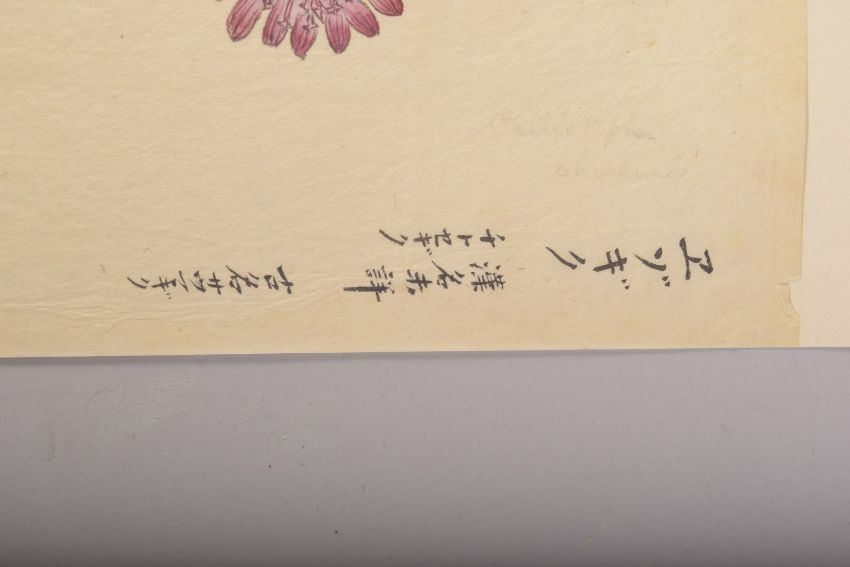 ヱゾギク
漢名未詳
チトセギク
古名サツマギク